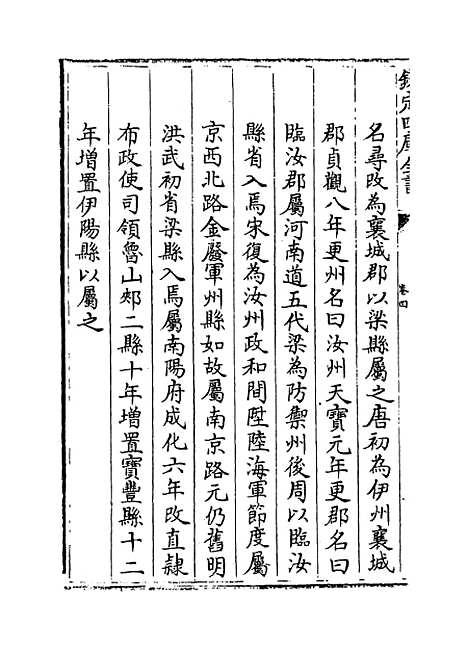 欽定四庫全書
卷四
名尋改為襄城郡以梁縣屬之唐初為伊州襄城
郡貞觀八年更州名曰汝州天寶元年更郡名曰
臨汝郡屬河南道五代梁為防禦州後周以臨汝
縣省入焉宋復為汝州政和間陞陸海軍節度屬
京西北路金廢軍州縣如故屬南京路元仍舊明
洪武初省梁縣入焉屬南陽府成化六年改直隷
布政使司領魯山郟二縣十年增置寶豐縣十二
年增置伊陽縣以屬之